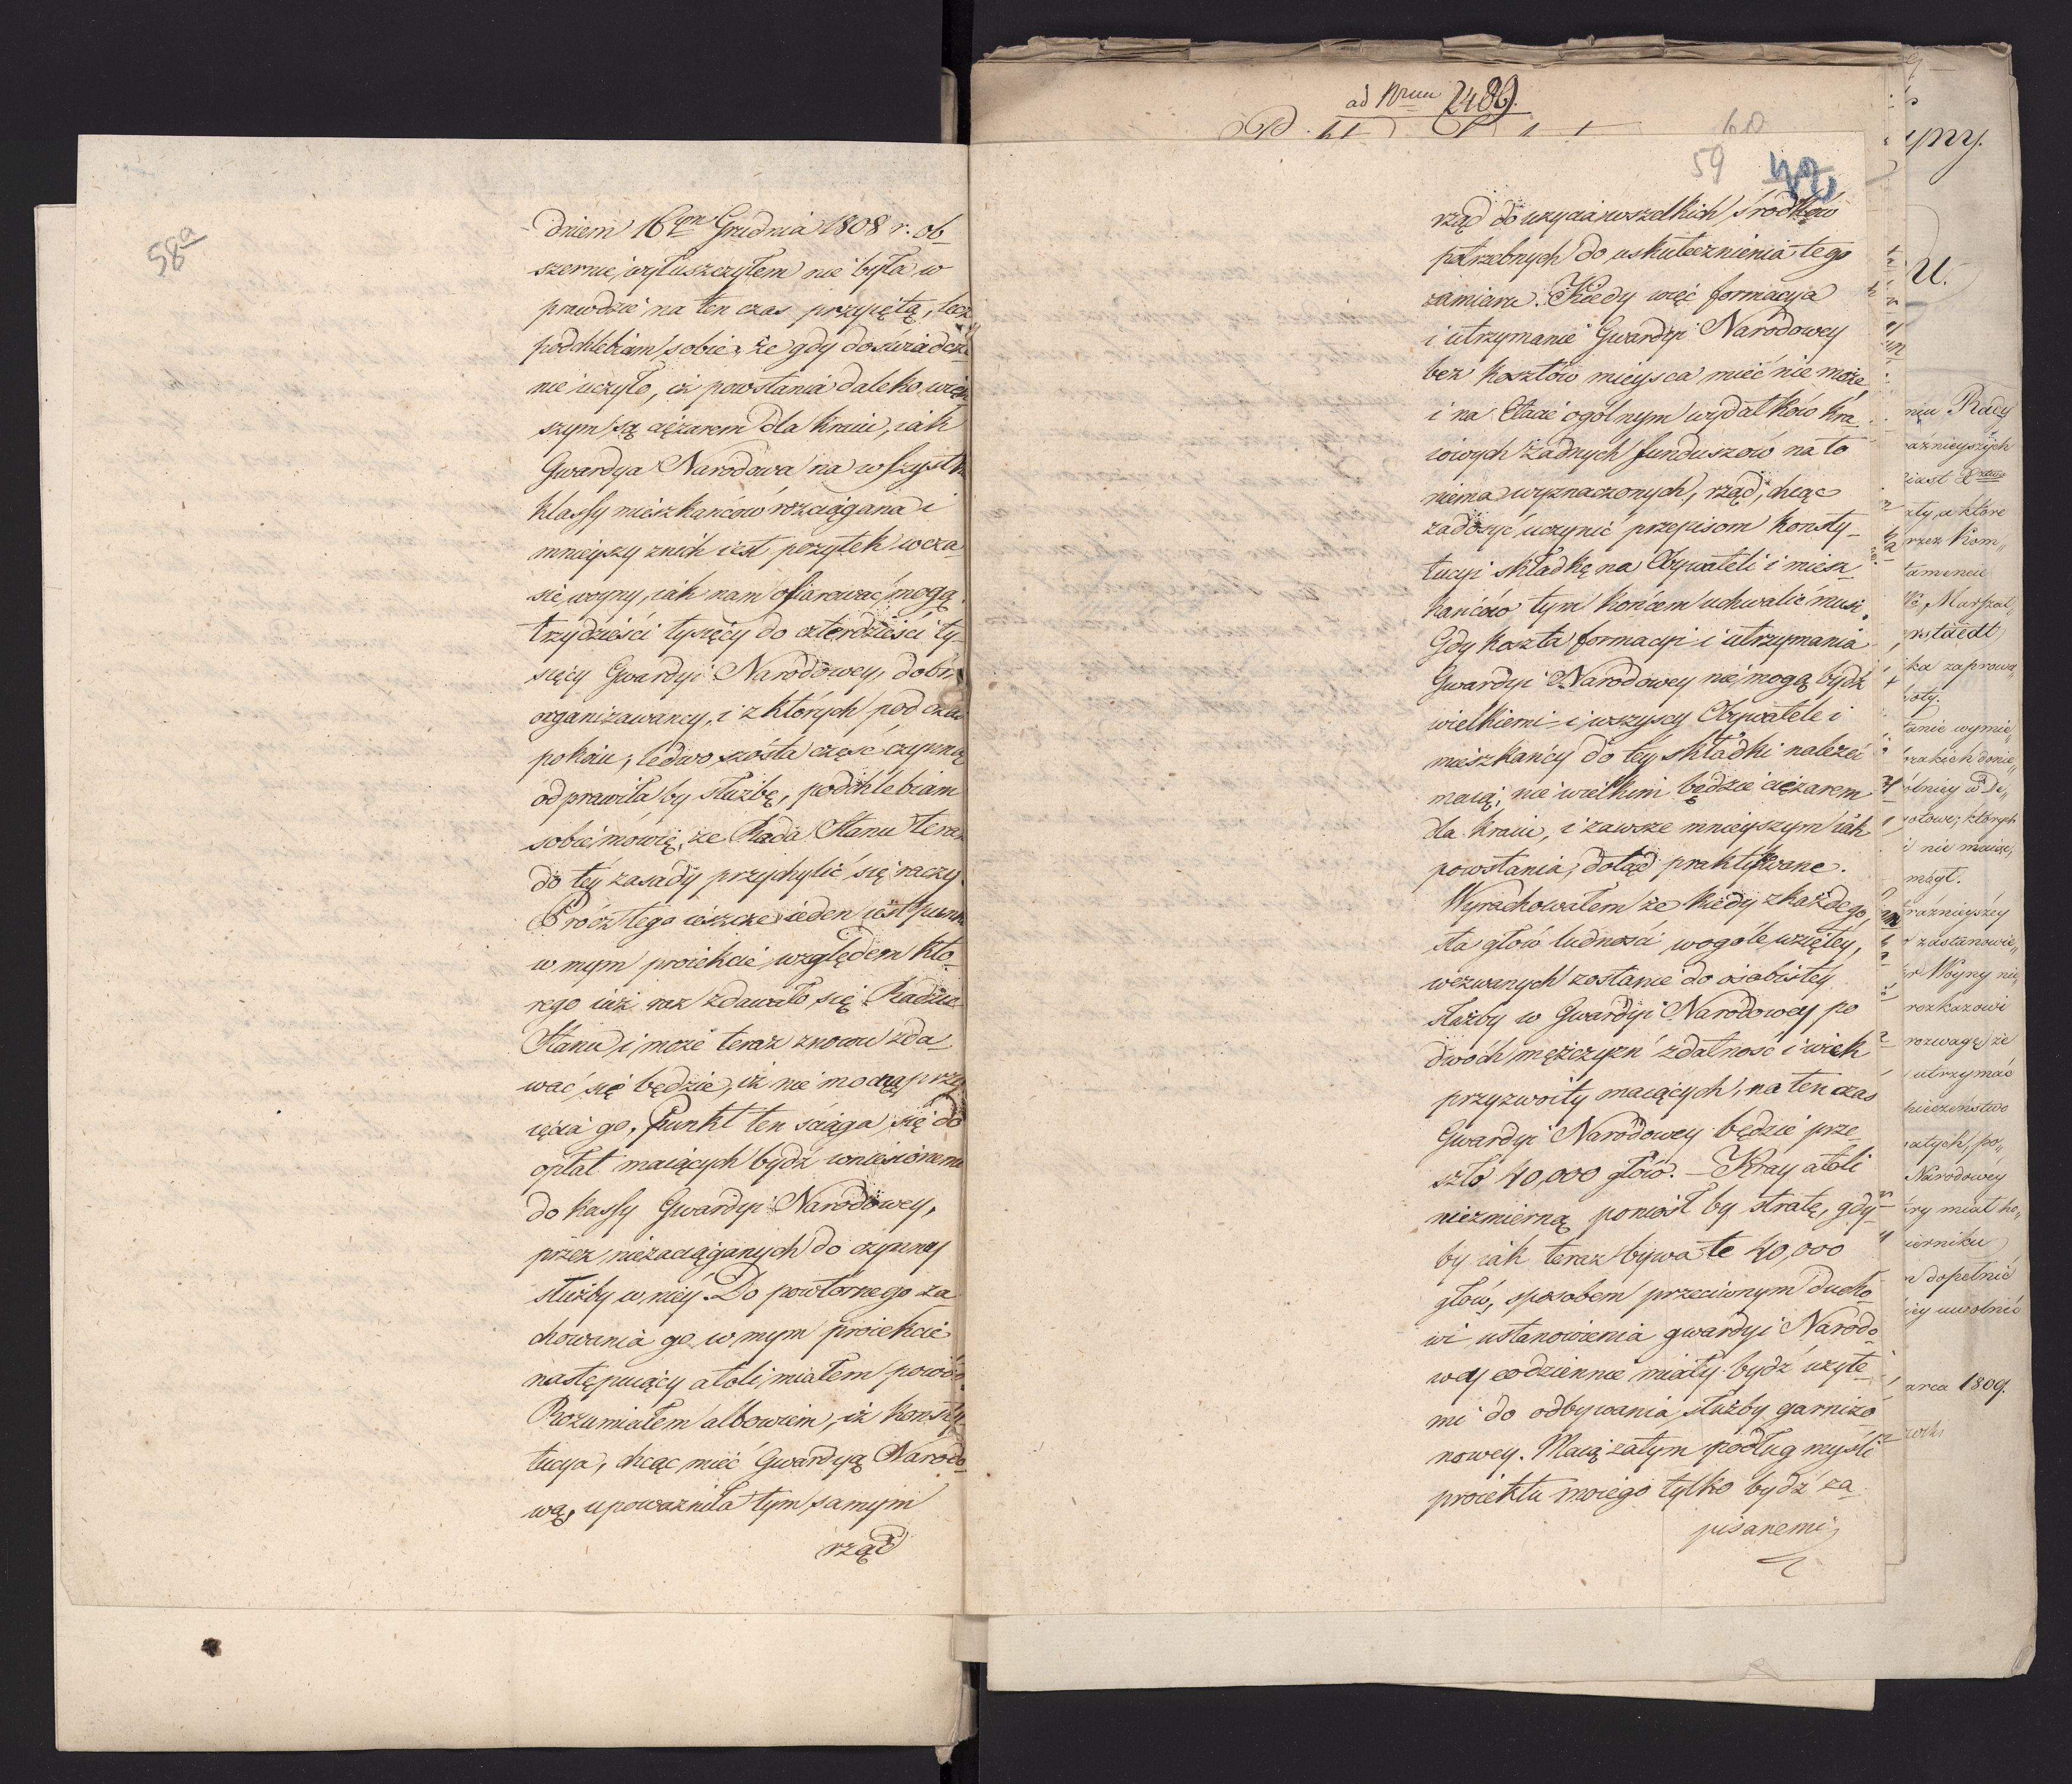 58a
dniem 16tym Grudnia 1808 r. ob-
szernie wyłuszczyłem nie była w
prawdzie na ten czas przyiętą, lecz
podchlebiam sobie, że gdy doswiadcze
nie uczyło, iż powstania daleko więk
szym są ciężarem dla kraiu, iak
Gwardya Narodowa na wszystk
klassy mieszkańców rozciągana i
mnieyszy znich iest pożytek wcza
sie woyny, iak nam ofiarować mogą
trzydzieści tysięcy do czterdzieści ty-
sięcy Gwardyi Narodowey, dobr
organizowaney, i z których pod czas
pokoiu, ledwo szósta część czynną
odprawiła by służbę, podchlebiam
sobie mówię, że Rada Stanu teraz
do tey zasady przychylić się raczy.
Prócz tego ieszcze ieden iest punkt
w mym proiekcie względem któ-
rego iuż raz zdawało się Radzie
Stanu i może teraz znowu zda-
wać się będzie, iż nie mogą przy
ięcia go. Punkt ten ściąga się do
opłat maiących bydź wniesionemi
do kassy Gwardyi Narodowey,
przez niezaciąganych do czynney
służby w niey. Do powtornego za-
chowania go w mym proiekcie
następuiący atoli miałem powód
Rozumiałem albowiem, iż konsty-
tucya, chcąc mieć Gwardyą Narodo-
wą, upoważniła tym samym
rząd
ad Nrum 2489.
60
59
rząd do użycia wszelkich środków
potrzebnych do uskutecznienia tego
zamiaru. Kiedy więc formacya
i utrzymanie Gwardyi Narodowey
bez kosztów mieysca mieć nie może,
i na Etacie ogólnym wydatków kra-
iowych żadnych funduszów na to
niema wyznaczonych, rząd, chcąc
zadosyć uczynić przepisom konsty-
tucyi składkę na Obywateli i miesz-
kańców tym końcem uchwalić musi.
Gdy koszta formacyi i utrzymania
Gwardyi Narodowey nie mogą bydź
wielkiemi i wszyscy Obywatele i
mieszkańcy do tey składki należeć
maią, nie wielkim będzie ciężarem
dla kraiu, i zawsze mnieyszym iak
powstania, dotąd praktykowane.
Wyrachowałem że kiedy z każdego
sta głów ludności wogóle wziętey,
wezwanych zostanie do osobistey
służby w Gwardyi Narodowey po
dwóch mężczyzn zdatność i wiek
przyzwoity maiących, na ten czas
Gwardyi Narodowey będzie prze-
szło 40,000 głów. – Kray atoli
niezmierną poniósł by stratę, gdy-
by iak teraz bywa te 40,000
głów, sposobem przeciwnym ducho-
wi ustanowienia gwardyi Narodo-
wey codziennie miały bydź użyte-
mi do odbywania służby garnizo-
nowey. Maią zatym podług myśli
proiektu moiego tylko bydź za-
pisanemi,
niu Rady
ważnieyszych
które
przez Kom„
tamencie
Marszał„
zaprowa„
wymie„
donie„
których
nie
zastanowie„
Woyny nie„
rozkazowi
rozwagę że
utrzymać
Narodowey
miał
dopełnić
uwolnić
arca 1809.